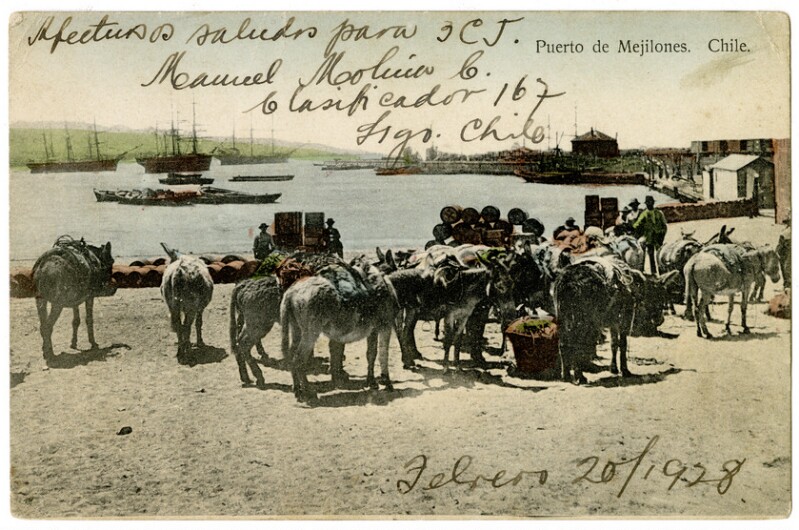 Afectuosos saludos para 3CJ.
Puerto de Mejilones. Chile.
Manuel Molina C.
Clasificador 167
Stgo. Chile
Febrero 20/1928